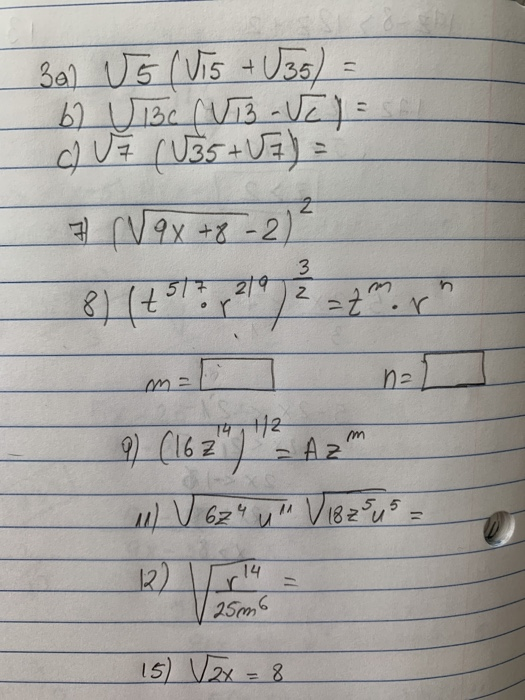 3a) √5 (√15 + √35) =
b) √13c (√13 - √c) =
c) √7 (√35 + √7) =
7) (√9x + 8 - 2)²
8) (t^5/7 · r^2/9)^3/2 = t^m · r^n
m = n =
9) (16z^14)^1/2 = A z^m
11) √6z⁴u¹¹ √18z⁵u⁵ =
12) √r^14/25m⁶ =
15) √2x = 8